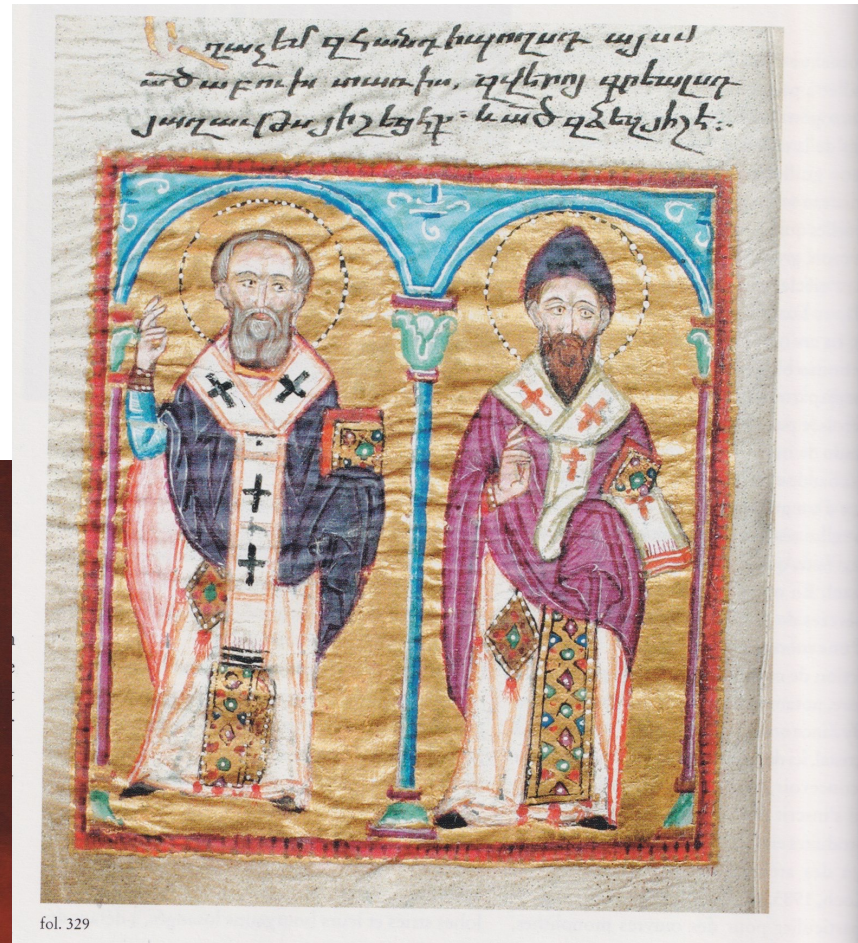 Աղաչեմ զհանդիպողսդ այսմ
ած̅աբուխ տառիս, զվերոյ գրեալսդ
յաղաւթս յիշեցէք. և ած̅ զձեզ յիշէ։
fol. 329